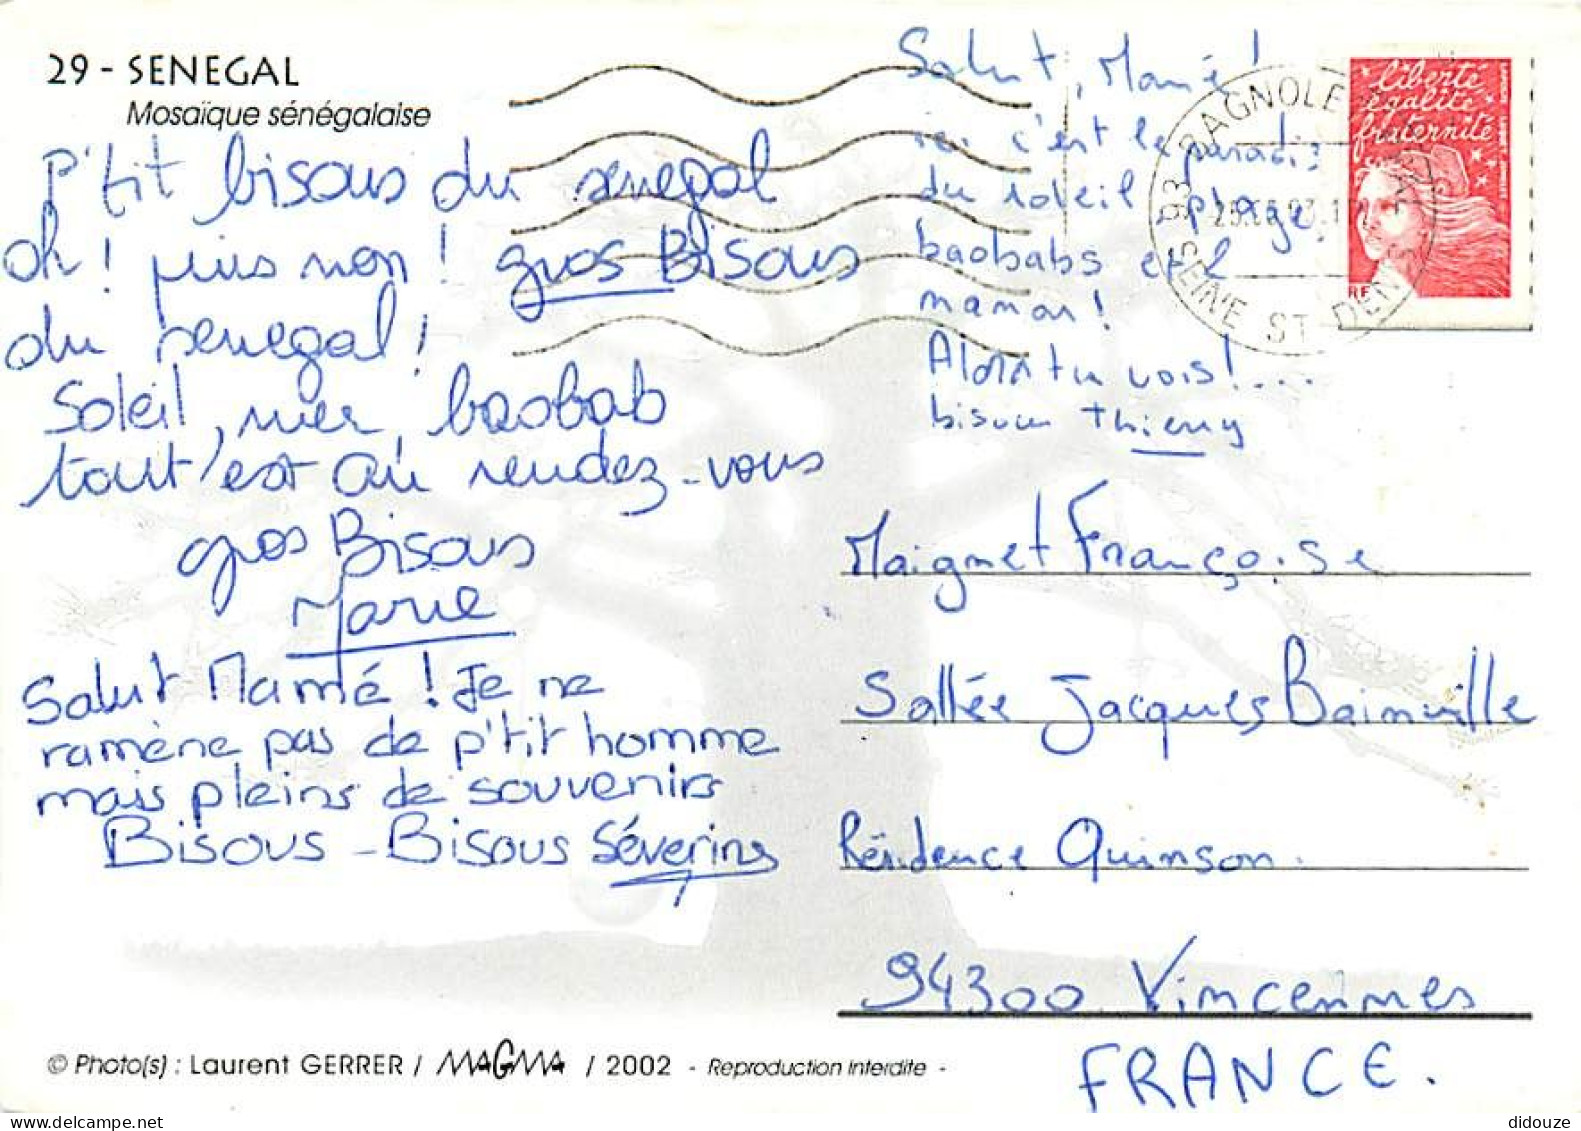 29 - SENEGAL
Mosaïque sénégalaise
P'tit bisous du senegal
oh! puis non! gros Bisous
du senegal!
Soleil, mer, baobab
tout est au rendez-vous
gros Bisous
Marie
Salut Mamé! Je ne
ramène pas de p'tit homme
mais pleins de souvenirs
Bisous - Bisous Séverine
Salut, Mamé!
ici c'est le paradis
du soleil plage,
baobabs et
maman!
Alors tu vois!...
bisous Thierry
93 BAGNOLE
SEINE ST DENIS
liberté
égalité
fraternité
RF
Maignet Françoise
Sallée Jacques Bainville
Résidence Quinson.
94300 Vincennes
FRANCE.
© Photo(s) : Laurent GERRER / MAGMA / 2002 - Reproduction interdite -
didouze
delcampe.net